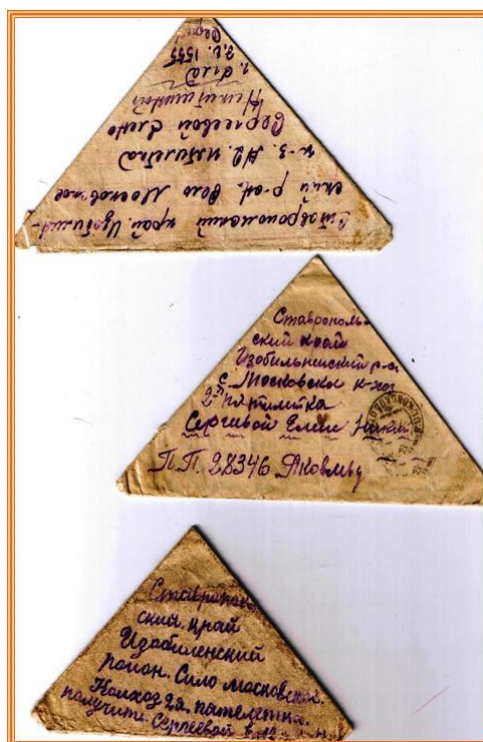 Ставропольский край. Изобилин-
ский р-он. Село Московское
к-з. №2. пятилетка
Сергеевой Елене
Никитишной
Ставрополь-
ский край
Изобильненский р-он
с. Московское к-хоз
2-я пятилетка
Сергеевой Елене Никит
П.П. 28346 Яковлеву
Ставрополь
ский. край
Изобиленский
район. Сило московское.
Колхоз 2я. пателетка.
получите. Сергеевой